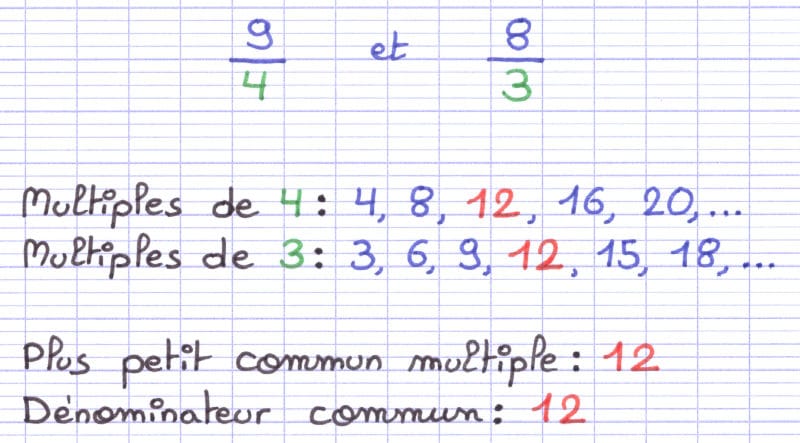 9/4 et 8/3
Multiples de 4 : 4, 8, 12, 16, 20, ...
Multiples de 3 : 3, 6, 9, 12, 15, 18, ...
Plus petit commun multiple : 12
Dénominateur commun : 12